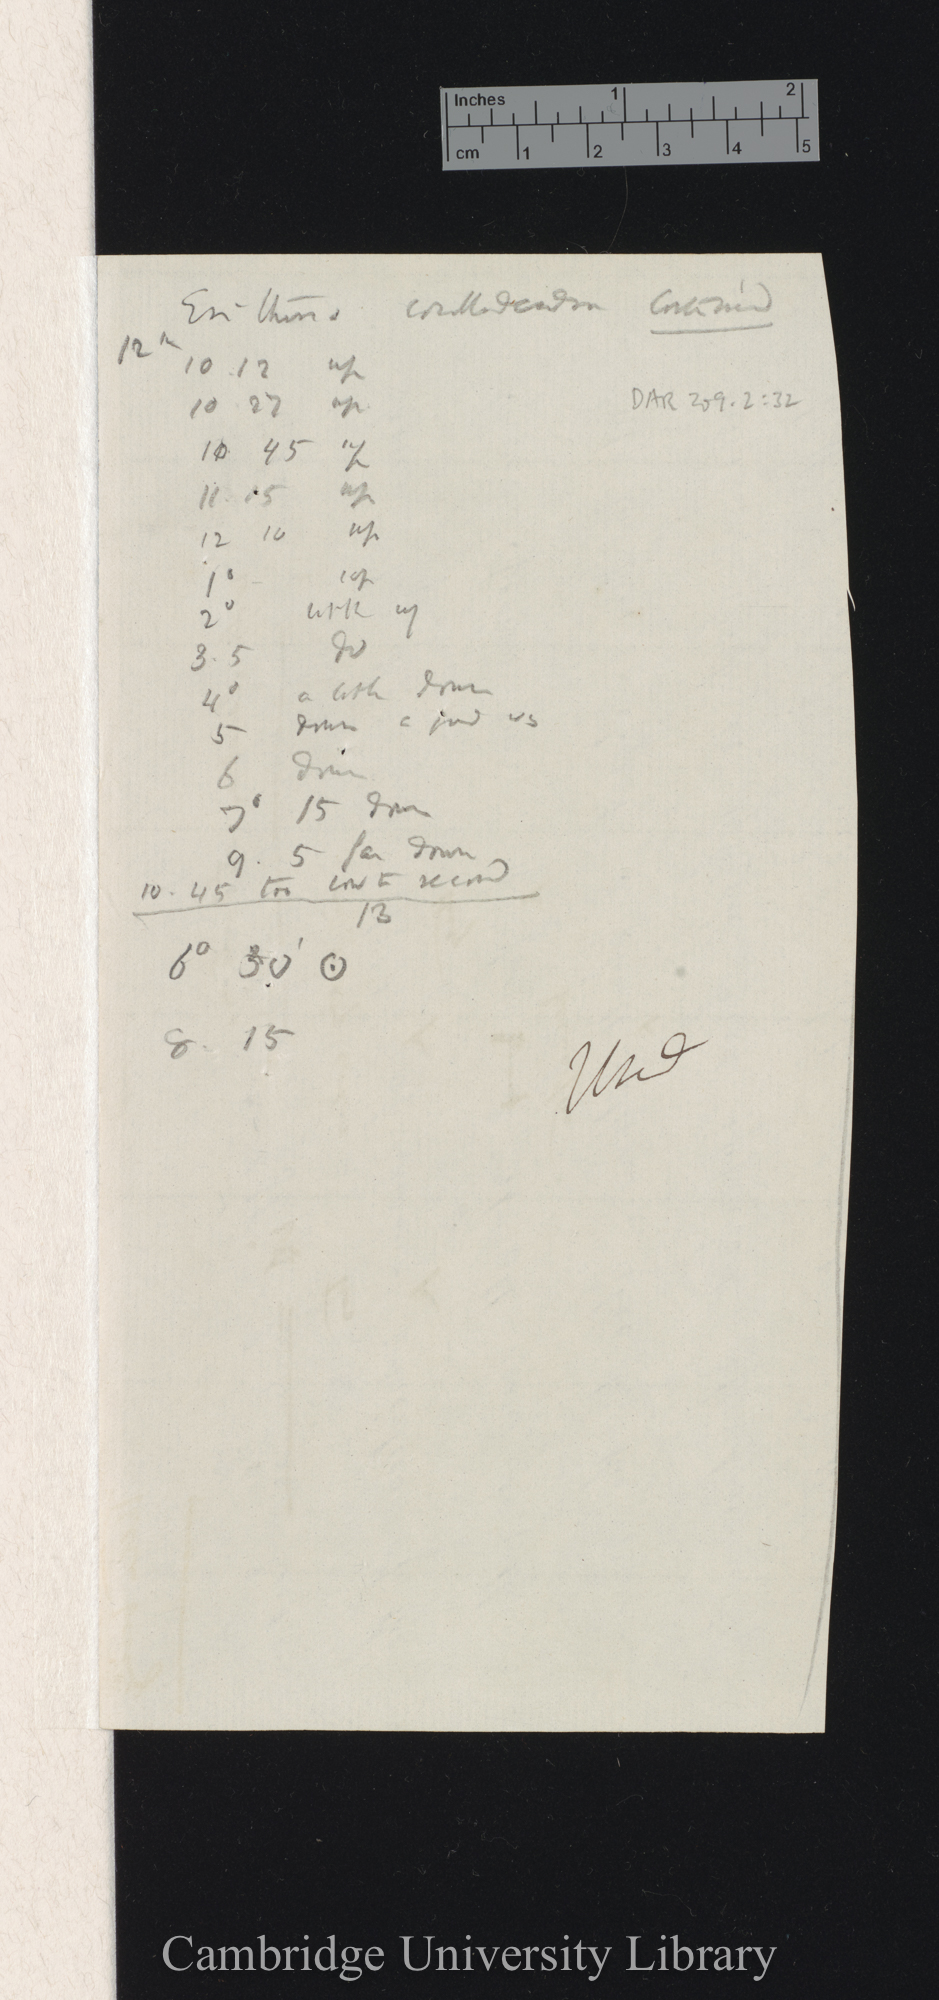 Inches 1 2
cm 1 2 3 4 5
Erithrina corallodendron Continued
12th
10 . 12 up
10 27 up
DAR 209.2:32
10 45 up
11. 15 up
12 10 up
1° up
2° little up
3. 5 do
4° a little down
5 down a good
6 down
7° 15 down
9. 5 far down
10. 45 too low to record
13
6° 30' ⊙
8. 15
Used
Cambridge University Library